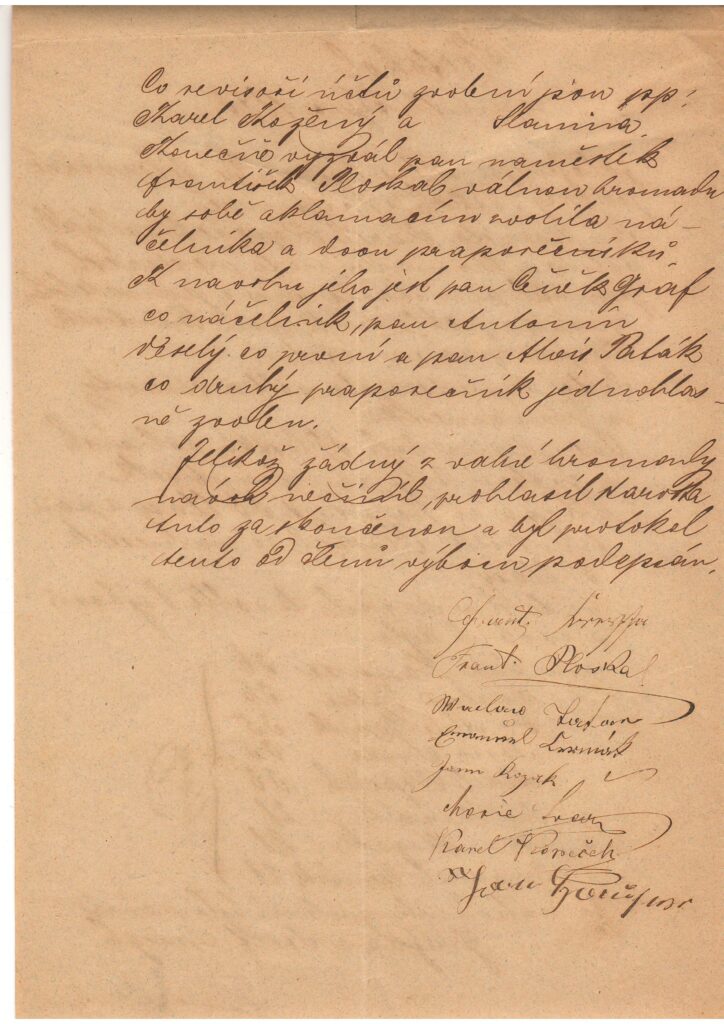 Co revisoři účtů zvoleni jsou pp:
Karel Kožený a Slanina.
Konečně vyzval pan náměstek
František Ploskal valnou hromadu
by sobě aklamacím zvolila ná-
čelníka a dvou praporečníků.
K návrhu jeho jest pan Čeněk Graf
co náčelník, pan Antonín
Veselý co první a pan Alois Paták
co druhý praporečník jednohlas-
ně zvolen.
Jelikož žádný z valné hromady
návrh nečinil, prohlásil starosta
tuto za skončenou a byl protokol
tento od členů výboru podepsán.
Frant.
Frant. Ploskal
Emanuel Čermák
Jan
Karel
Jan